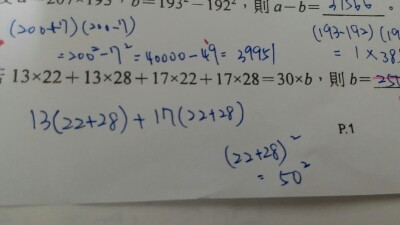 a=207×193，b=193²-192²，則 a-b= 39566 。
(200+7)(200-7)
=200²-7²=40000-49=39951
(193-192)(19
=1×38
13×22+13×28+17×22+17×28=30×b，則 b=
13(22+28)+17(22+28)
P.1
(22+28)²
=50²